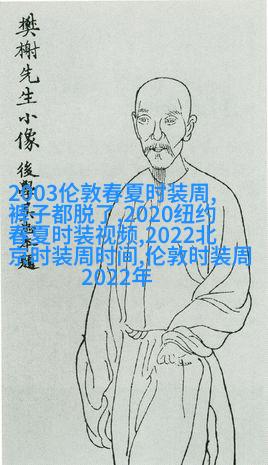 樊榭先生小像
後學
2003伦敦春夏时装周,
裤子都脱了,2020纽约
春夏时装视频,2022北
京时装周时间,伦敦时装周
2022年